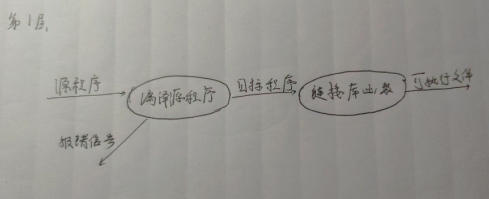 第1层
源程序
编译源程序
目标程序
链接库函数
可执行文件
报错信号